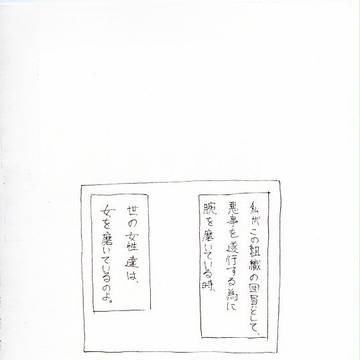 私が、この組織の団員として、
悪事を遂行する為に
腕を磨いている時、
世の女性達は、
女を磨いているのよ。